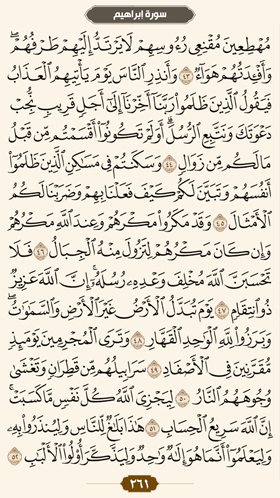 سورة إبراهيم
مُهْطِعِينَ مُقْنِعِي رُءُوسِهِمْ لَا يَرْتَدُّ إِلَيْهِمْ طَرْفُهُمْ ۖ
وَأَفْـِٔدَتُهُمْ هَوَآءٌ ٤٣ وَأَنذِرِ ٱلنَّاسَ يَوْمَ يَأْتِيهِمُ ٱلْعَذَابُ
فَيَقُولُ ٱلَّذِينَ ظَلَمُوا۟ رَبَّنَآ أَخِّرْنَآ إِلَىٰٓ أَجَلٍ قَرِيبٍ نُّجِبْ
دَعْوَتَكَ وَنَتَّبِعِ ٱلرُّسُلَ ۗ أَوَلَمْ تَكُونُوٓا۟ أَقْسَمْتُم مِّن قَبْلُ
مَا لَكُم مِّن زَوَالٍ ٤٤ وَسَكَنتُمْ فِى مَسَـٰكِنِ ٱلَّذِينَ ظَلَمُوٓا۟
أَنفُسَهُمْ وَتَبَيَّنَ لَكُمْ كَيْفَ فَعَلْنَا بِهِمْ وَضَرَبْنَا لَكُمُ
ٱلْأَمْثَالَ ٤٥ وَقَدْ مَكَرُوا۟ مَكْرَهُمْ وَعِندَ ٱللَّهِ مَكْرُهُمْ
وَإِن كَانَ مَكْرُهُمْ لِتَزُولَ مِنْهُ ٱلْجِبَالُ ٤٦ فَلَا
تَحْسَبَنَّ ٱللَّهَ مُخْلِفَ وَعْدِهِۦ رُسُلَهُۥٓ ۗ إِنَّ ٱللَّهَ عَزِيزٌ
ذُو ٱنتِقَامٍ ٤٧ يَوْمَ تُبَدَّلُ ٱلْأَرْضُ غَيْرَ ٱلْأَرْضِ وَٱلسَّمَـٰوَٰتُ ۖ
وَبَرَزُوا۟ لِلَّهِ ٱلْوَٰحِدِ ٱلْقَهَّارِ ٤٨ وَتَرَى ٱلْمُجْرِمِينَ يَوْمَئِذٍ
مُّقَرَّنِينَ فِى ٱلْأَصْفَادِ ٤٩ سَرَابِيلُهُم مِّن قَطِرَانٍ وَتَغْشَىٰ
وُجُوهَهُمُ ٱلنَّارُ ٥٠ لِيَجْزِىَ ٱللَّهُ كُلَّ نَفْسٍ مَّا كَسَبَتْ ۚ
إِنَّ ٱللَّهَ سَرِيعُ ٱلْحِسَابِ ٥١ هَـٰذَا بَلَـٰغٌ لِّلنَّاسِ وَلِيُنذَرُوا۟ بِهِۦ
وَلِيَعْلَمُوٓا۟ أَنَّمَا هُوَ إِلَـٰهٌ وَٰحِدٌ وَلِيَذَّكَّرَ أُو۟لُوا۟ ٱلْأَلْبَـٰبِ ٥٢
٢٦١